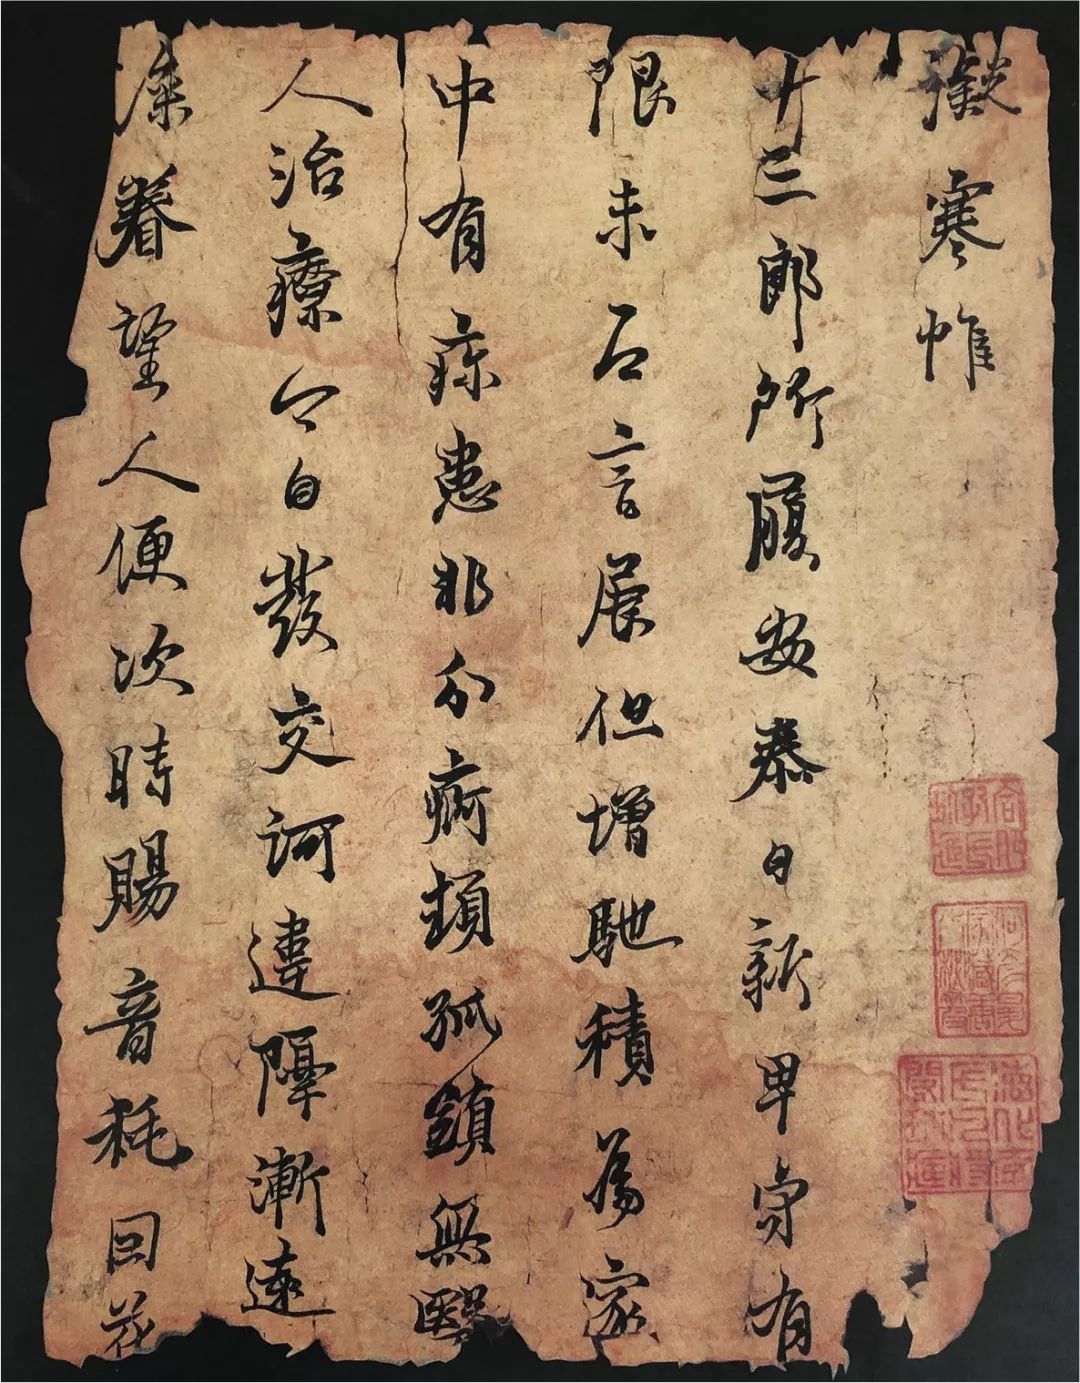 擬寒帷
十三郎所履安泰日新卑守有
限未及言展但增馳積為家
中有疹患非分痾頓孤鎮無醫
人治療今自發交訶違隔漸遠
深眷望人便次時賜音耗回花